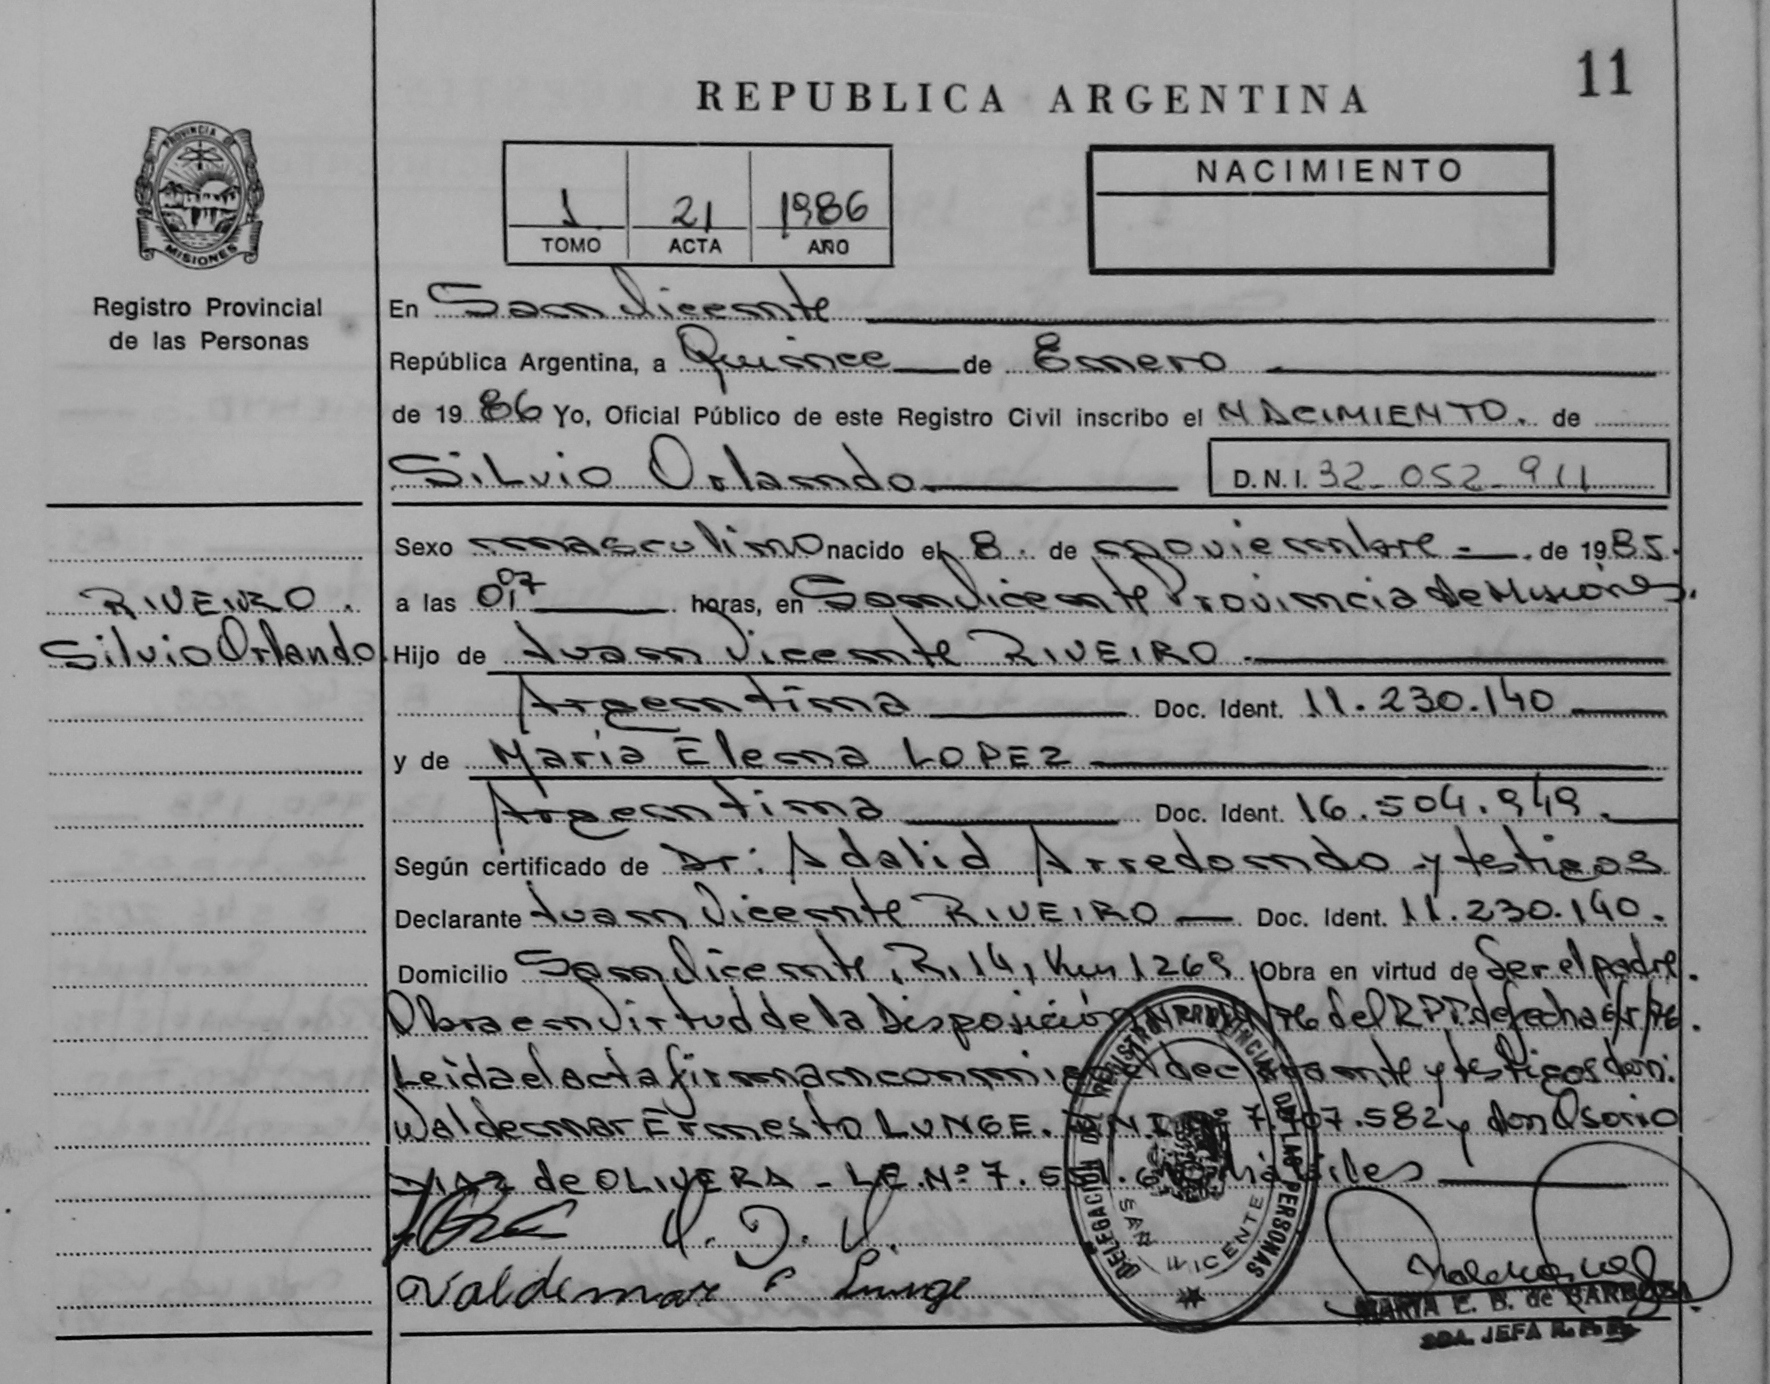 11
REPUBLICA ARGENTINA
PROVINCIA DE
MISIONES
Registro Provincial
de las Personas
1 21 1986
TOMO ACTA AÑO
NACIMIENTO
En San Vicente
República Argentina, a Quince de Enero
de 19 86 Yo, Oficial Público de este Registro Civil inscribo el NACIMIENTO. de
Silvio Orlando D.N.I. 32-052-911
Sexo masculino nacido el 8. de noviembre - de 19 85.
a las 0,07 horas, en San Vicente Provincia de Misiones.
RIVEIRO.
Silvio Orlando
Hijo de Juan Vicente RIVEIRO
Argentina Doc. Ident. 11.230.140
y de María Elena LOPEZ
Argentina Doc. Ident. 16.504.949.
Según certificado de Dr: Adalid Arredondo y testigos
Declarante Juan Vicente RIVEIRO Doc. Ident. 11.230.140.
Domicilio San Vicente, R. 14, Km 1269 Obra en virtud de Ser el padre.
Obra en Virtud de la Disposición /76 del R.P.P. de fecha 6/5/76.
Leida el acta firman conmigo el declarante y testigos don:
Waldemar Ernesto LUNGE. D.N.I. Nº 7.707.582 y don Osorio
DIAZ de OLIVERA - L.E. Nº 7. hábiles
V. D. O.
Valdemar E Lunge
DELEGACION DEL REGISTRO PROVINCIAL DE LAS PERSONAS
SAN VICENTE
MARIA E. B. de BARBOZA
JEFA R. P. P.